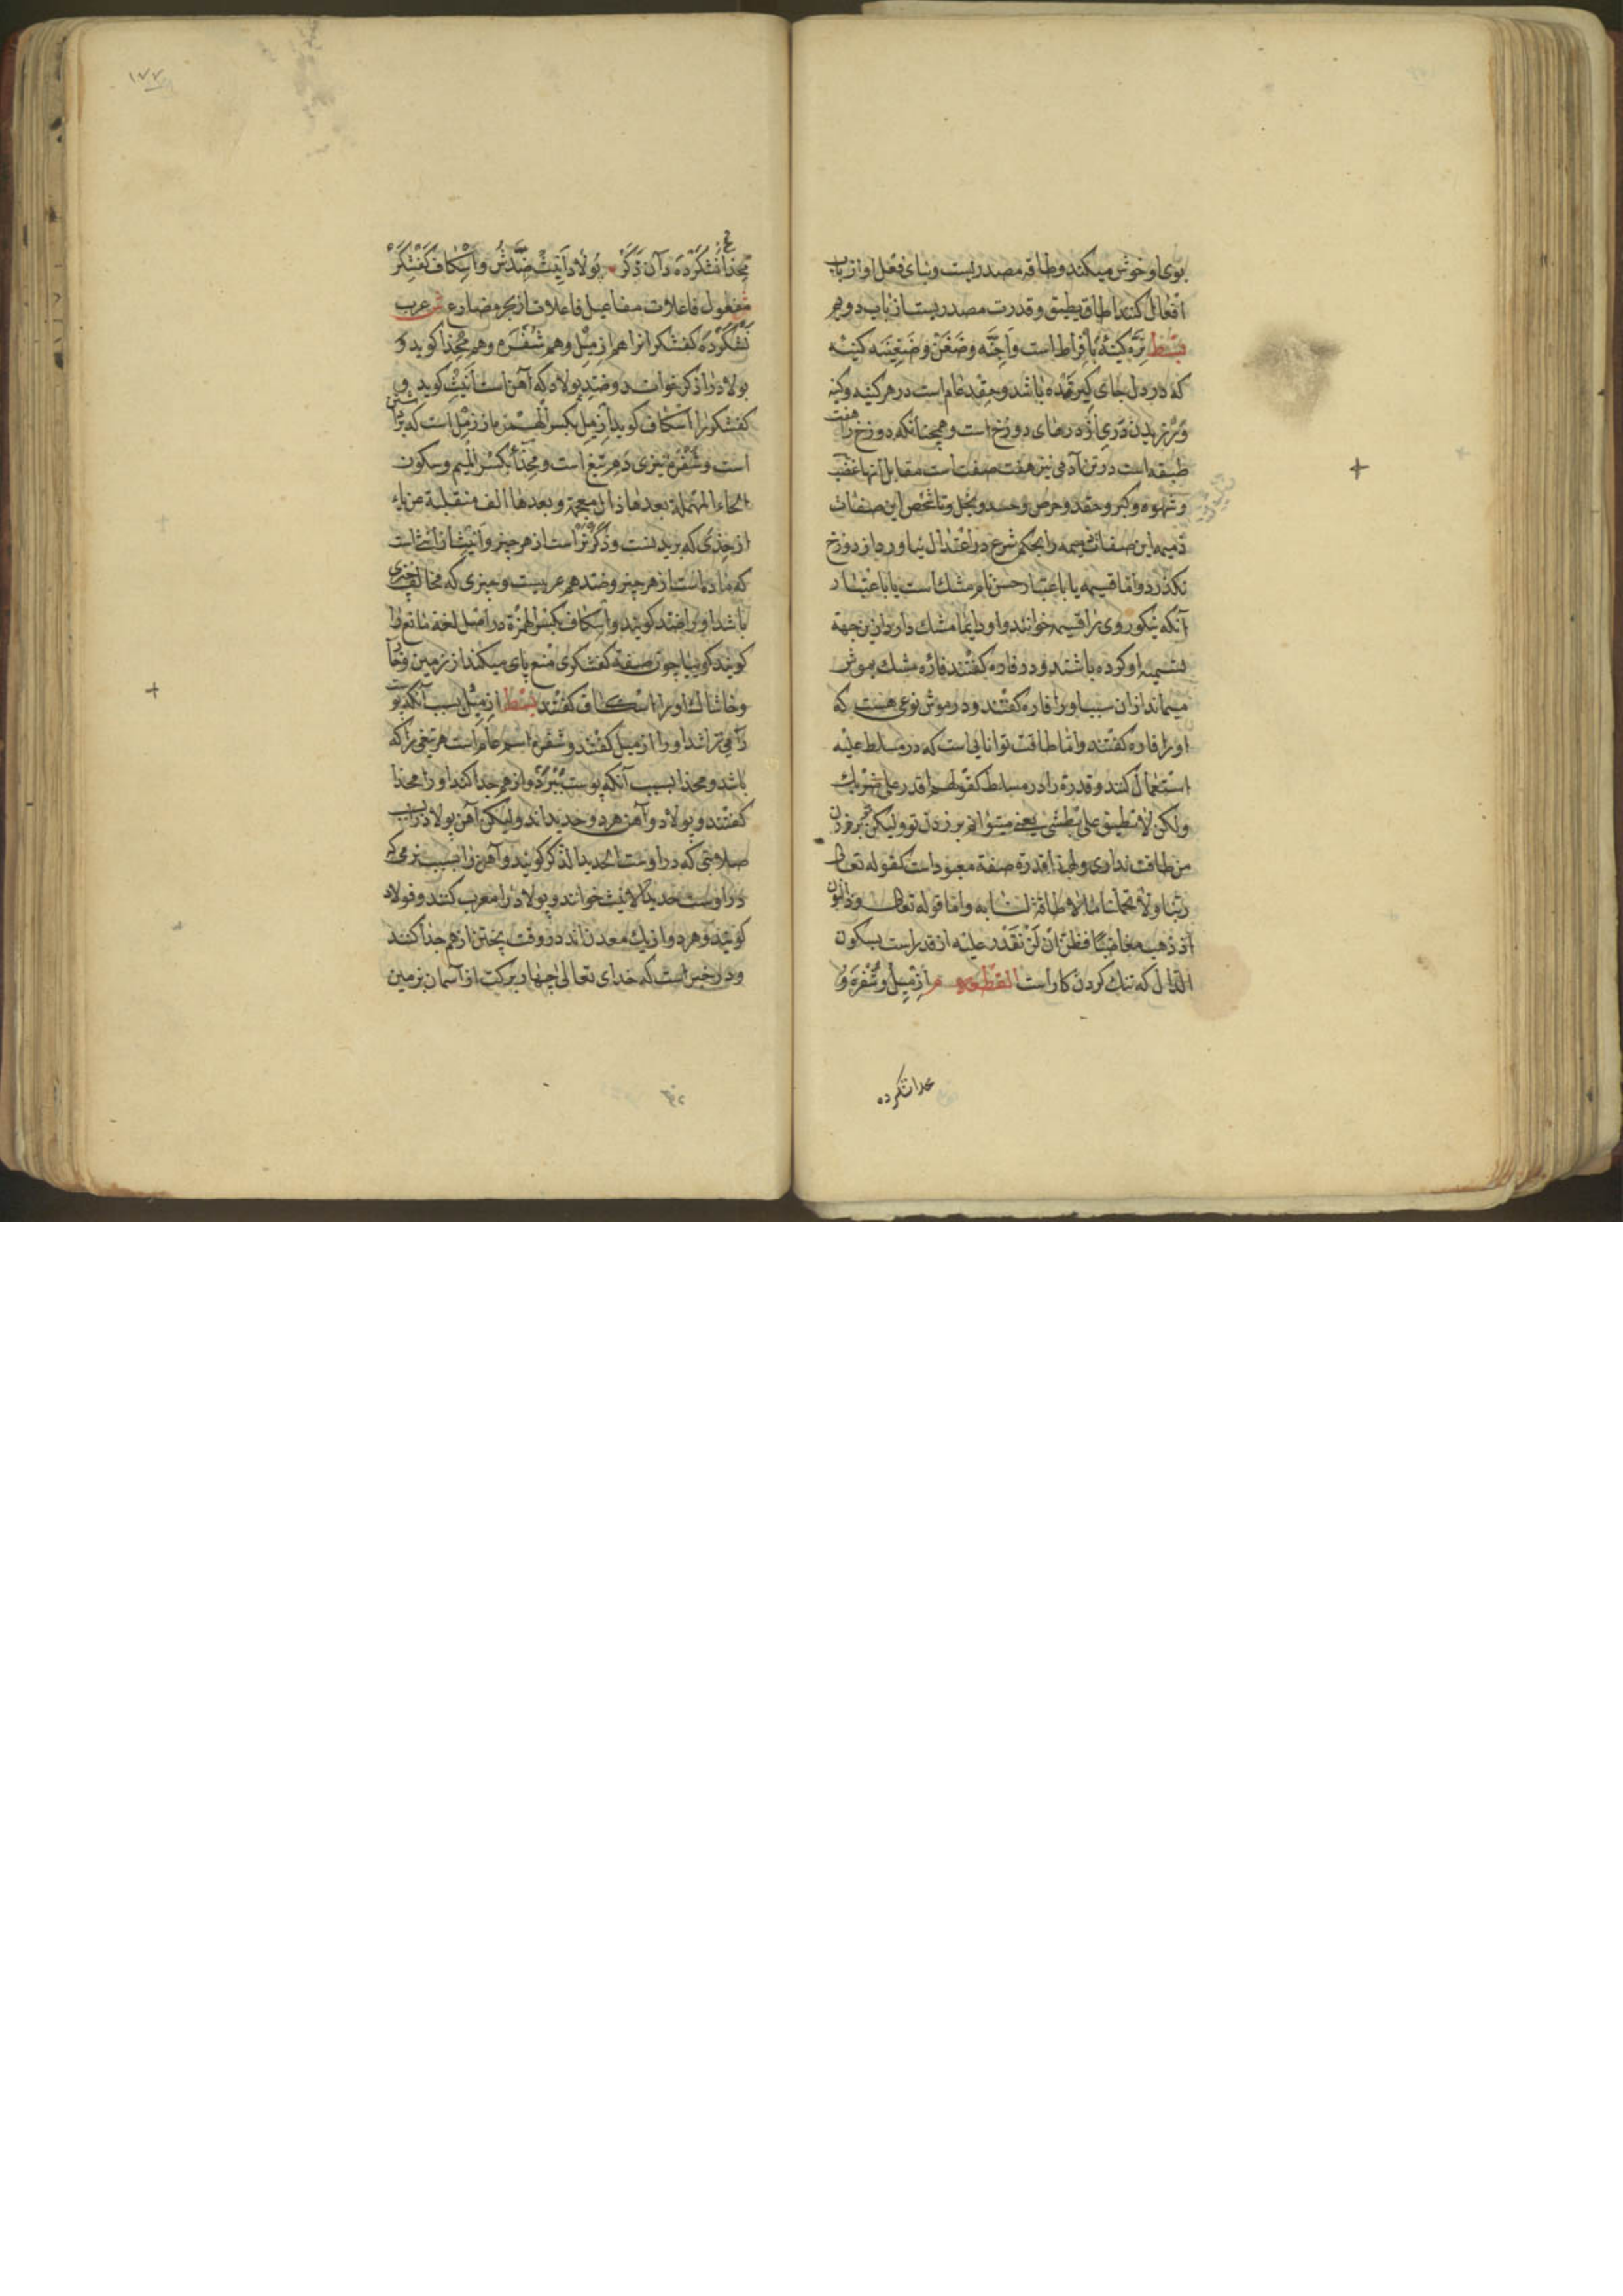 بوی او خوش میکند و طاقه مصدریست و بنای فعل او از باب
افعال کنند اطاق یطیق و قدرت مصدریست از باب دویم
بسط تره کینهٔ بافراط است و احنه و ضغن و ضغینه کینه
که در دل جای کیر شده باشد و حقد عام است در هر کینه و کینه
دری از درهای دوزخ است و همچنانکه دوزخ را هفت
طبقه است در تن آدمی نیز هفت صفت است مقابل آنها غضب
و شهوه و کبر و حقد و حرص و حسد و بخل و تا شخص این صفات
ذمیمه این صفات را بحکم شرع در اعتدال نیاورد از دوزخ
نکذرد و اما قسیمه یا باعتبار حسن نام مشک است یا باعتبار
آنکه نیکو روی را قسیمه خوانند و او دایما مشک دارد ازین جهة
تسمیه او کرده باشند و در فاره کفتند فاره مشک بموش
میماند از آن سبب او را فاره کفتند و در موش نوعی هست که
او را فاره کفتند و اما طاقت توانایی است که در مسلط علیه
استعمال کنند و قدرة را در مسلط کقولهم اقدر علی ضربک
ولکن لا تطیق علی بطشی یعنی میتوانم بر زدن تو ولیکن بر زدن
من طاقت نداری و لهذا قدرة صفة معبود است کقوله تعالی
ربنا ولا تحملنا ما لا طاقة لنا به و اما قوله تعالی وذا النون
اذ ذهب مغاضبا فظن ان لن نقدر علیه از قدر است بسکون
الدال که تنک کردن کار است القطعه م ازمیل و شفره و
محذا نشکرده
محذا نشکرده دان ذکر بولاد انیث ضدش و اسکاف کفشکر
مفعول فاعلات مفاعیل فاعلات از بحر مضارع ش عرب
نشکرده کفشکر انرا هم ازمیل و هم شفره و هم محذا کوید و
بولاد را ذکر خواند و ضد بولاد که آهن است انیث کوید و
کفشکر را اسکاف کوید ازمیل بکسر الهمزه از زمل است که
است و شفره تیزی دم تیغ است و محذا بکسر المیم و سکون
الحاء المهملة بعدها ذال معجمة و بعدها الف منقلبة عن یاء
از حذی که بریدنست و ذکر نر است از هر چیز و انیث از انثی است
که ماده است از هر چیز و ضد هم عربیست و چیزی که مخالف چیزی
باشد او را ضد کویند و اسکاف بکسر الهمزة در اصل لغة مانع را
کویند کوییا چون صفة کفشکری منع پای میکند از زمین و خار
و خاشاک او را اسکاف کفتند بسط ازمیل بسبب آنکه پوست
را می تراشد او را ازمیل کفتند و شفره اسم عام است هر تیغی را که
باشد و محذا بسبب آنکه پوست ببرد و از هم جدا کند او را محذا
کفتند و بولاد و آهن هر دو حدید اند ولیکن آهن بولاد را بسبب
صلابتی که در اوست الحدید الذکر کویند و آهن را بسبب نرمی که
در اوست حدید الانیث خوانند و بولاد را معرب کنند و فولاد
کویند و هر دو از یک معدن اند در وقت پختن از هم جدا کنند
و در خبر است که خدای تعالی چهار برکت از آسمان بزمین
١٧٧